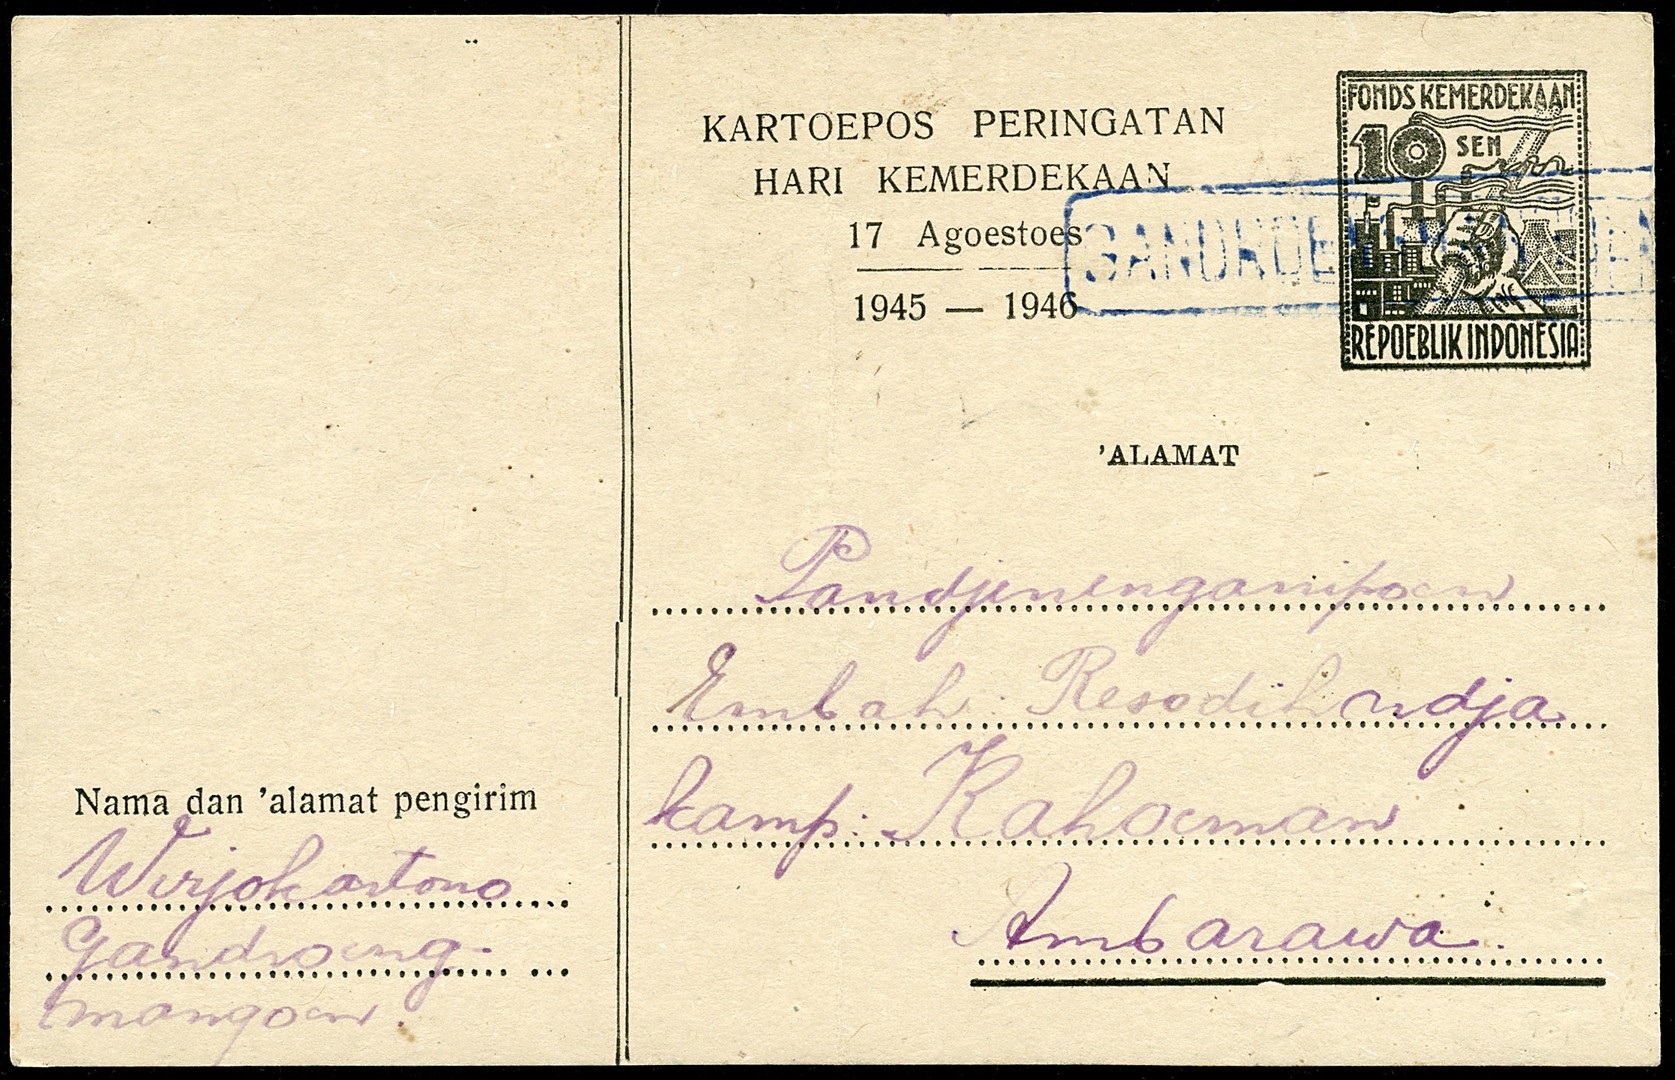 KARTOEPOS PERINGATAN
HARI KEMERDEKAAN
17 Agoestoes
1945 — 1946
FONDS KEMERDEKAAN
10 SEN
REPOEBLIK INDONESIA
'ALAMAT
Pandjenenganipoen
Embah Resodihardja
kamp: Kahoeman
Ambarawa.
Nama dan 'alamat pengirim
Wirjokartono
Gandroeng-
mangoen.